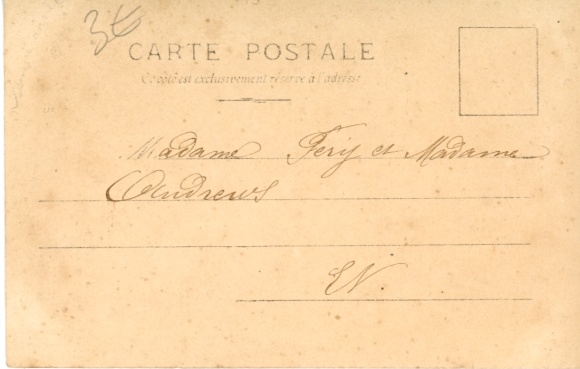 3€
CARTE POSTALE
Ce côté est exclusivement réservé à l'adresse
Madame Fery et Madame
Andrews
EV.